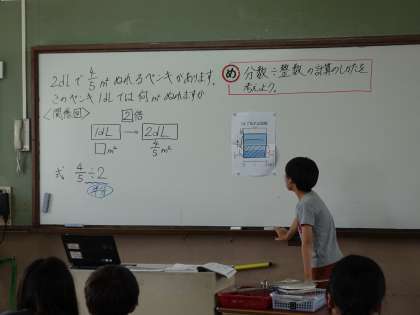 2dLで 4/5 m² ぬれるペンキがあります。
このペンキ 1dLでは何m²ぬれますか
め 分数÷整数の計算のしかたを
考えよう。
〈関係図〉
2倍
1dL → 2dL
□m² 4/5 m²
式 4/5÷2